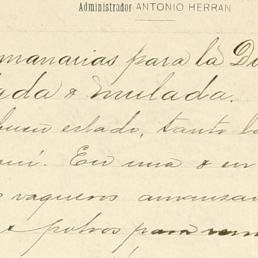 Administrador ANTONIO HERRAN
manarias para la D
ada o mulada.
buen estado, tanto l
En una o en
vaqueros amansa
potros para